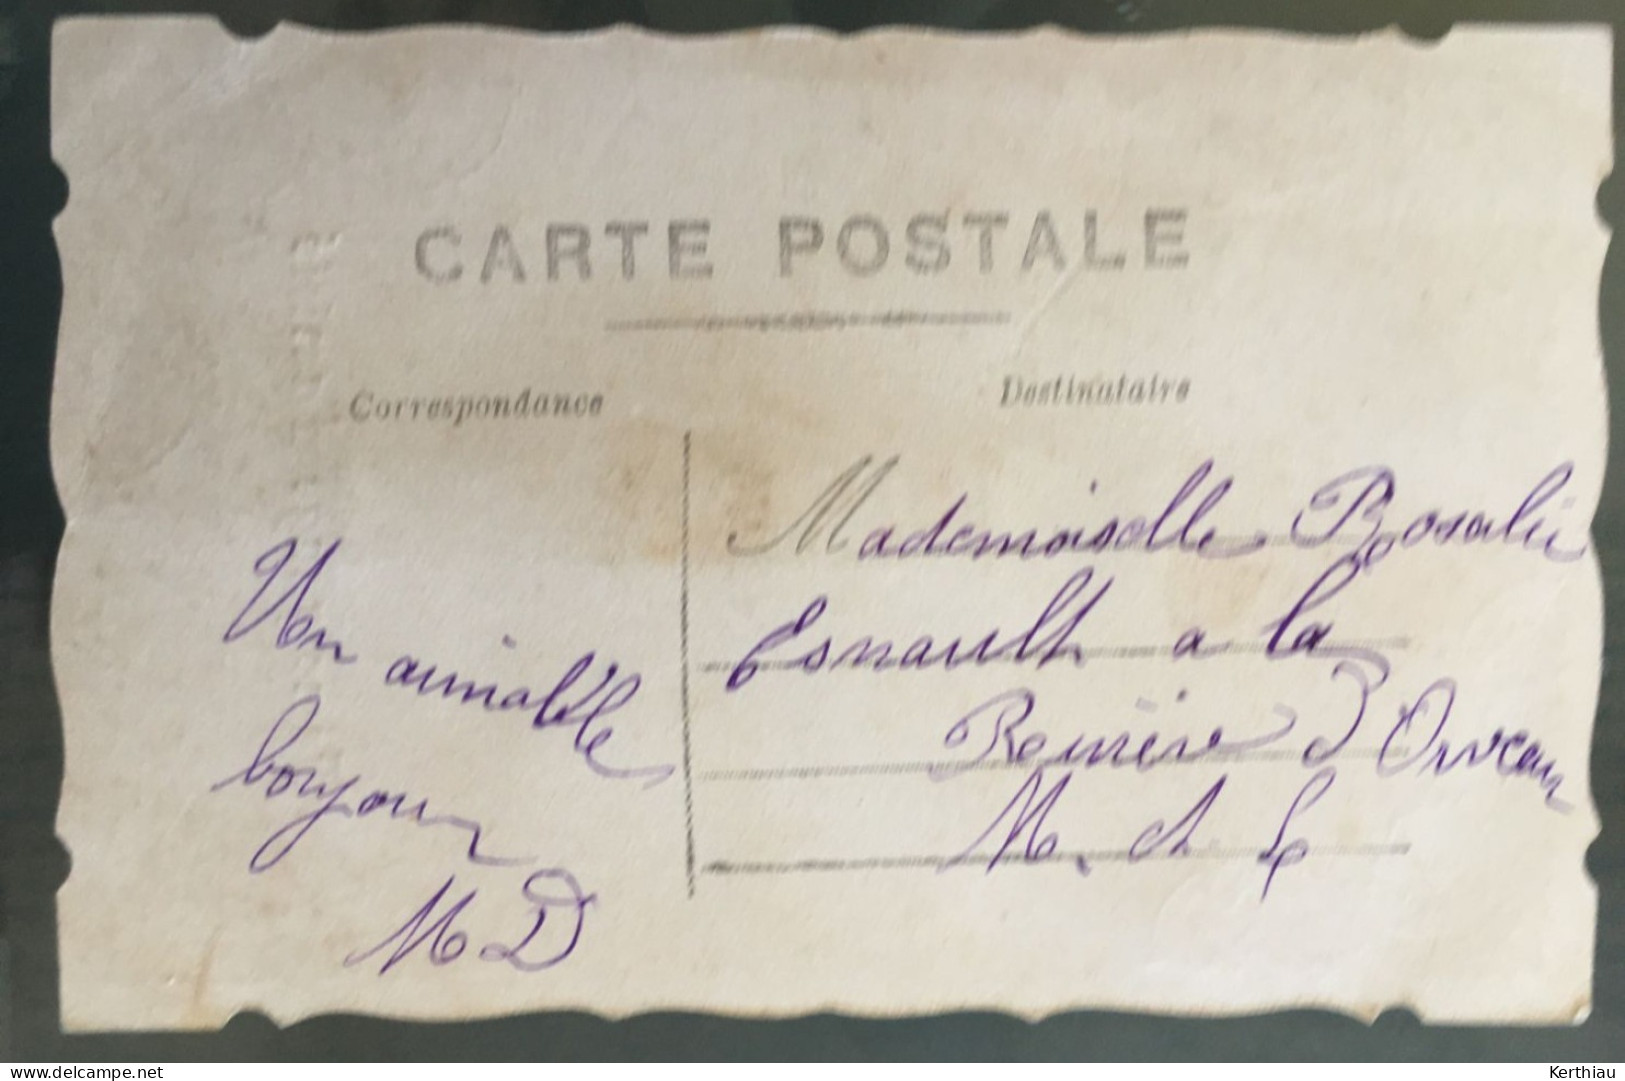 CARTE POSTALE
Correspondance
Destinataire
Un aimable
bonjour
M D
Mademoiselle Rosalie
Esnault a la
d'Orveau
M. et L
delcampe.net
Kerthiau